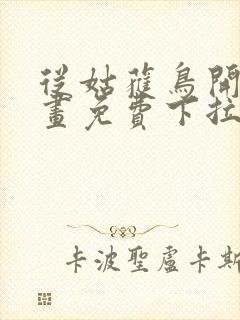 從姑蘿鳥開
畫免費下拉
卡波聖盧卡斯